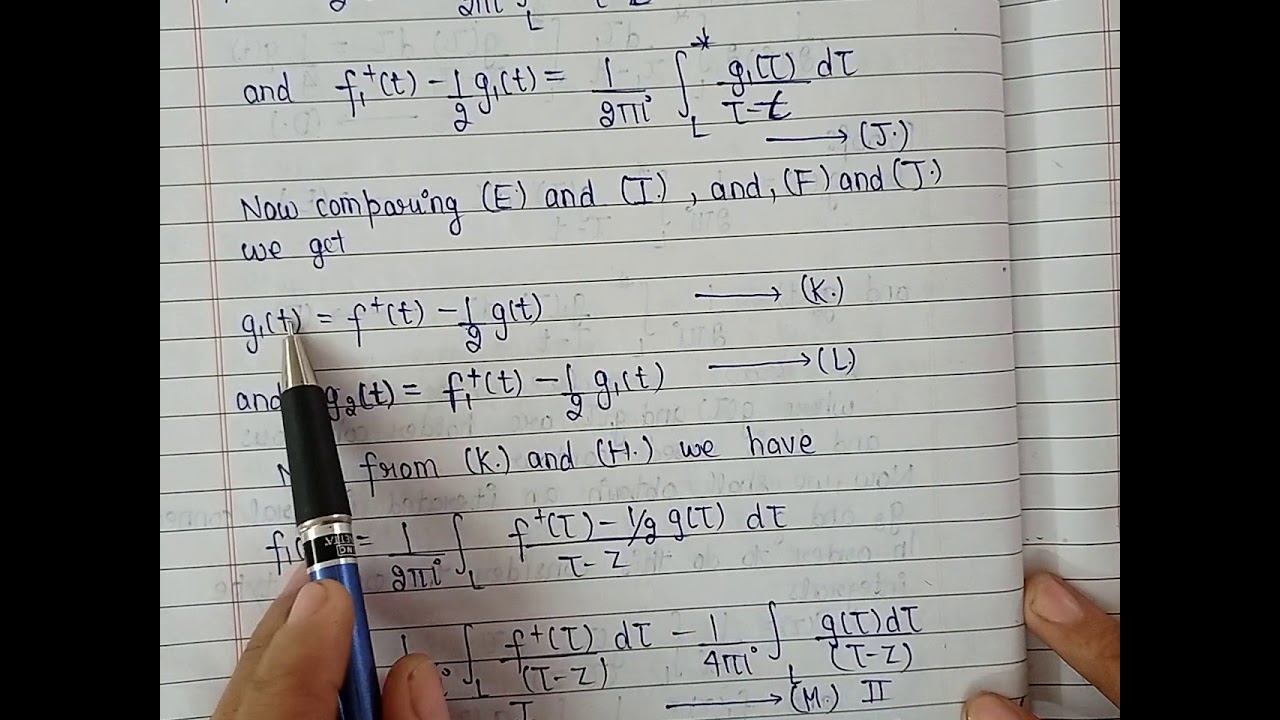 and f₁⁺(t) – 1/2 g₁(t) = 1/2πi ∫*_L g₁(τ) dτ / τ-t
⟶ (J.)
Now comparing (E.) and (I.), and, (F) and (J.)
we get
g₁(t) = f⁺(t) – 1/2 g(t) ⟶ (K.)
and g₂(t) = f₁⁺(t) – 1/2 g₁(t) ⟶ (L.)
from (K.) and (H.) we have
= 1/2πi ∫_L f⁺(τ) – 1/2 g(τ) dτ / τ-z
∫_L f⁺(τ) dτ / (τ-z) – 1/4πi ∫_L g(τ)dτ / (τ-z)
I ⟶ (M.) II